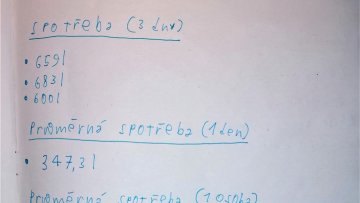 Spotřeba (3 dny)
• 659 l
• 683 l
• 600 l
Průměrná spotřeba (1 den)
• 347,3 l
Průměrná spotřeba (1 osoba)